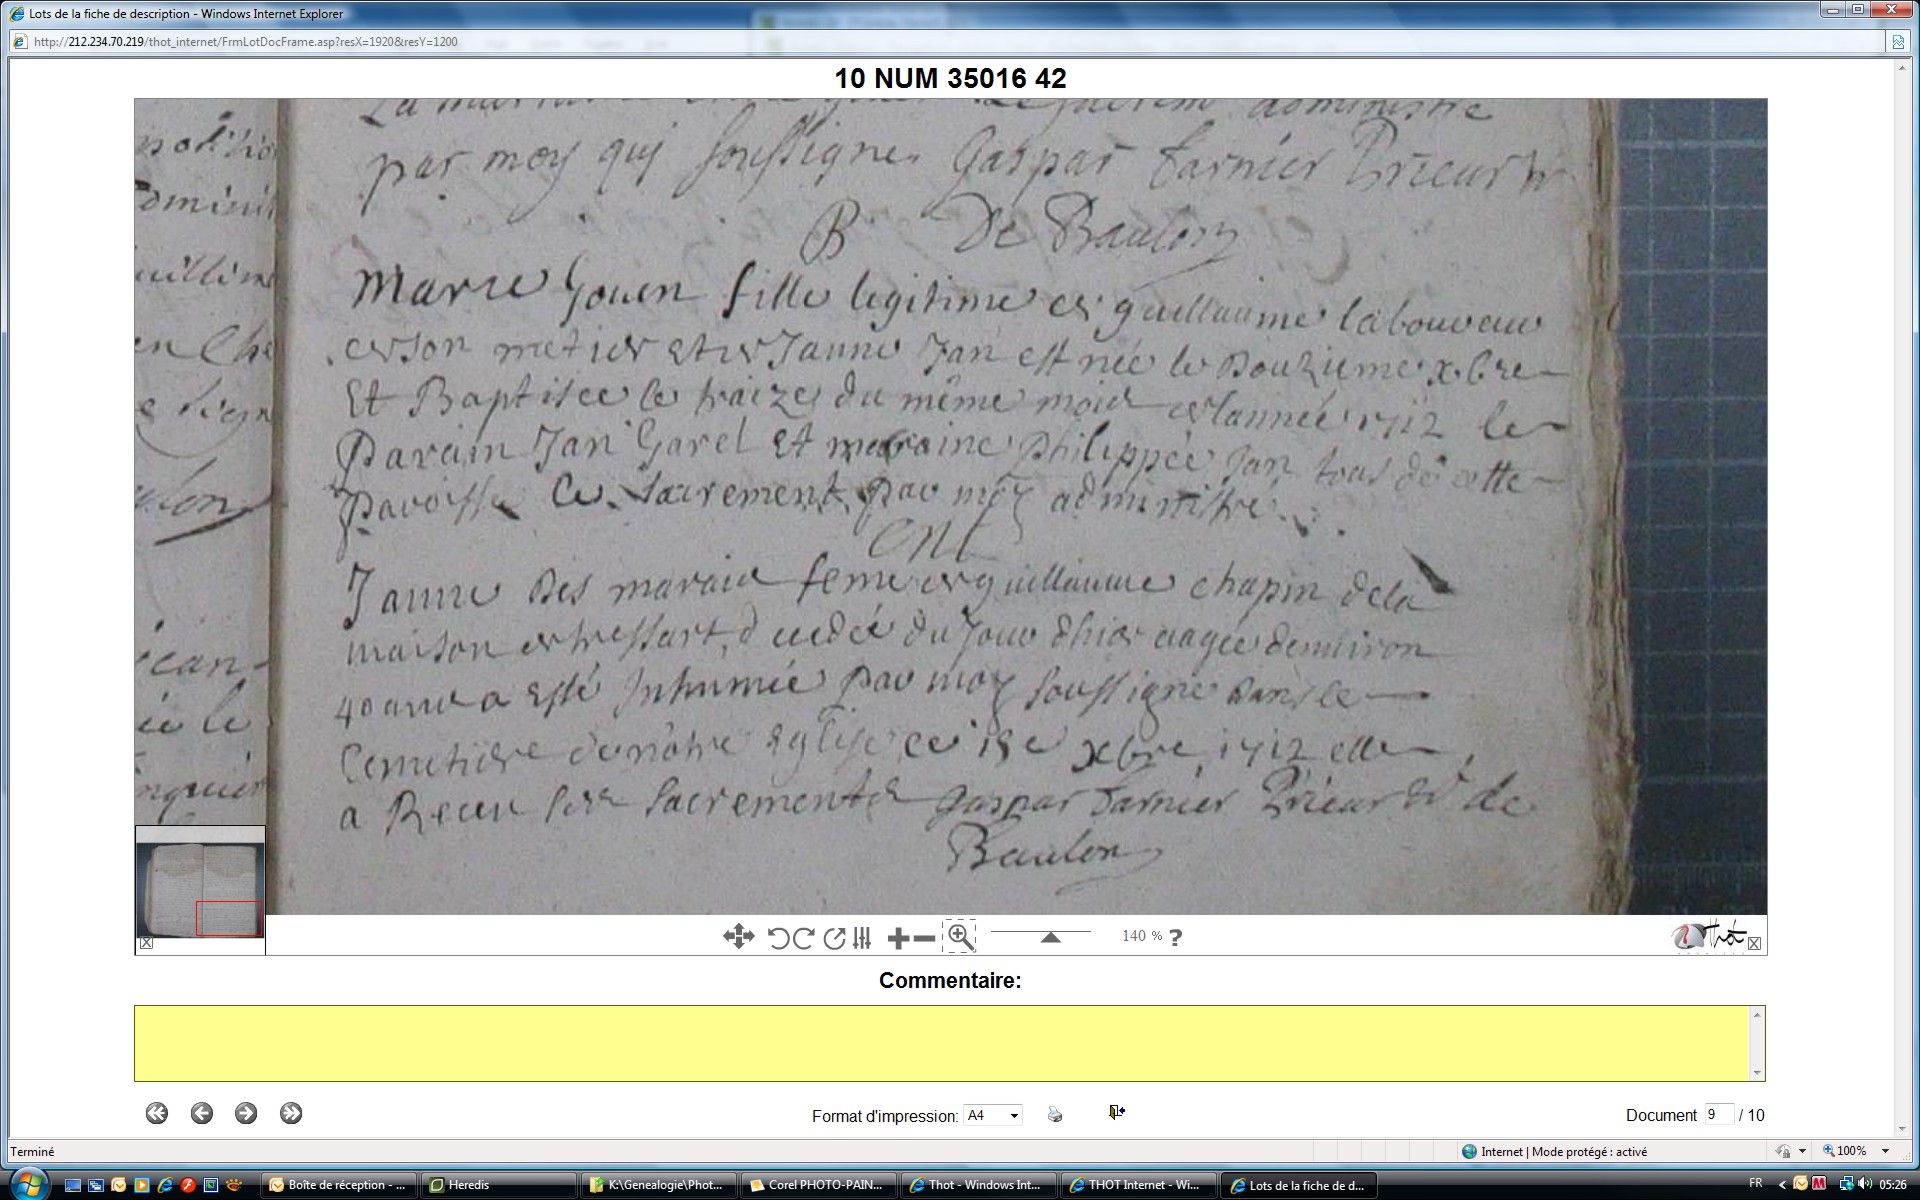 Lots de la fiche de description - Windows Internet Explorer
http://212.234.70.219/thot_internet/FrmLotDocFrame.asp?resX=1920&resY=1200
10 NUM 35016 42
par moy qui soussigne. Gaspar Farnier Prieur
B De Baulon
Marie Gouen fille legitime de guillaume laboureur
de son metier et de Janne Jan est née le Douzieme xbre
Et Baptisee le traize du même mois de lannée 1712 le
Parain Jan Garel Et maraine philippée Jan tous de cette
paroisse Ce sacrement par moy administre
Janne Des marais feme de guillaume chapin de la
maison de tressart, decedée du jour d'hier aagée denviron
40 ans a esté Inhumée par moy soussigné dans le
Cemetiere de nôtre Eglise ce xbre 1712 elle
a Receu ses sacrements gaspar farnier Prieur Rr de
Baulon
140 % ?
Thot
Commentaire:
Format d'impression: A4
Document 9 / 10
Terminé
Internet | Mode protégé : activé
100%
Boîte de réception - ...
Heredis
K:\Genealogie\Phot...
Corel PHOTO-PAIN...
Thot - Windows Int...
THOT Internet - Wi...
Lots de la fiche de d...
FR
05:26